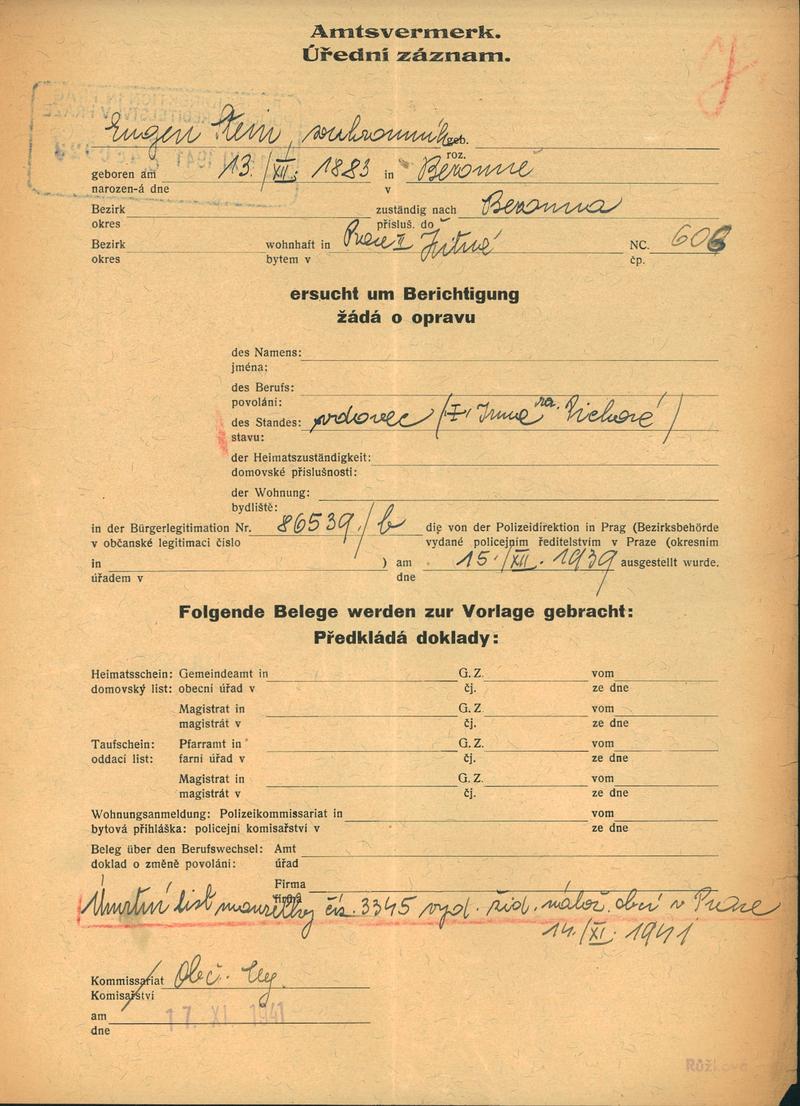 Amtsvermerk.
Úřední záznam.
Eugen Stein, soukromník geb.
roz.
geboren am 13./XII. 1883 in Berouně
narozen-á dne v
Bezirk zuständig nach Berouna
okres přísluš. do
Bezirk wohnhaft in Praze II Jitná NC. 606
okres bytem v čp.
ersucht um Berichtigung
žádá o opravu
des Namens:
jména:
des Berufs:
povolání:
des Standes: vdovec
stavu:
der Heimatszuständigkeit:
domovské příslušnosti:
der Wohnung:
bydliště:
in der Bürgerlegitimation Nr. 86539/b die von der Polizeidirektion in Prag (Bezirksbehörde
v občanské legitimaci číslo vydané policejním ředitelstvím v Praze (okresním
in ) am 15./XII. 1939 ausgestellt wurde.
úřadem v dne
Folgende Belege werden zur Vorlage gebracht:
Předkládá doklady:
Heimatsschein: Gemeindeamt in G. Z. vom
domovský list: obecní úřad v čj. ze dne
Magistrat in G. Z. vom
magistrát v čj. ze dne
Taufschein: Pfarramt in G. Z. vom
oddací list: farní úřad v čj. ze dne
Magistrat in G. Z. vom
magistrát v čj. ze dne
Wohnungsanmeldung: Polizeikommissariat in vom
bytová přihláška: policejní komisařství v ze dne
Beleg über den Berufswechsel: Amt
doklad o změně povolání: úřad
Firma
firma
Úmrtní list manželky čís. 3345 vyd. žid. nábož. obcí v Praze
14./XI. 1941
Kommissariat Obč. leg.
Komisařství
am 17. XI. 1941
dne